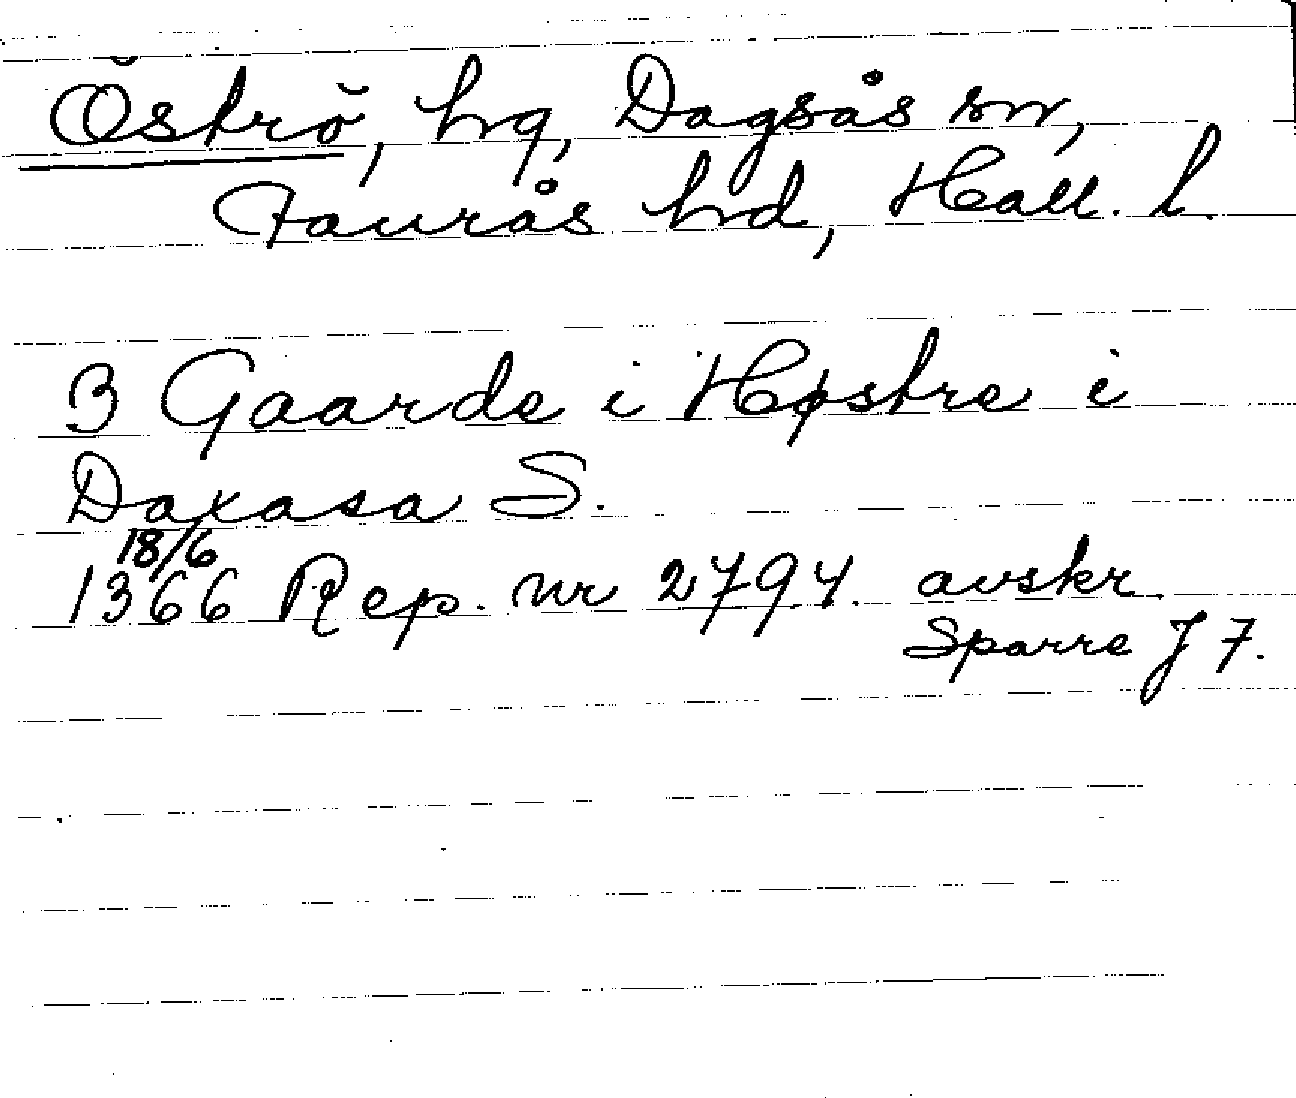 Öströ, hg, Dagsås sn,
Faurås hd, Hall. l.
3 Gaarde i Høstre i
Daxasa S.
18/6
1366 Rep. nr 2794. avskr.
Sparre J 7.